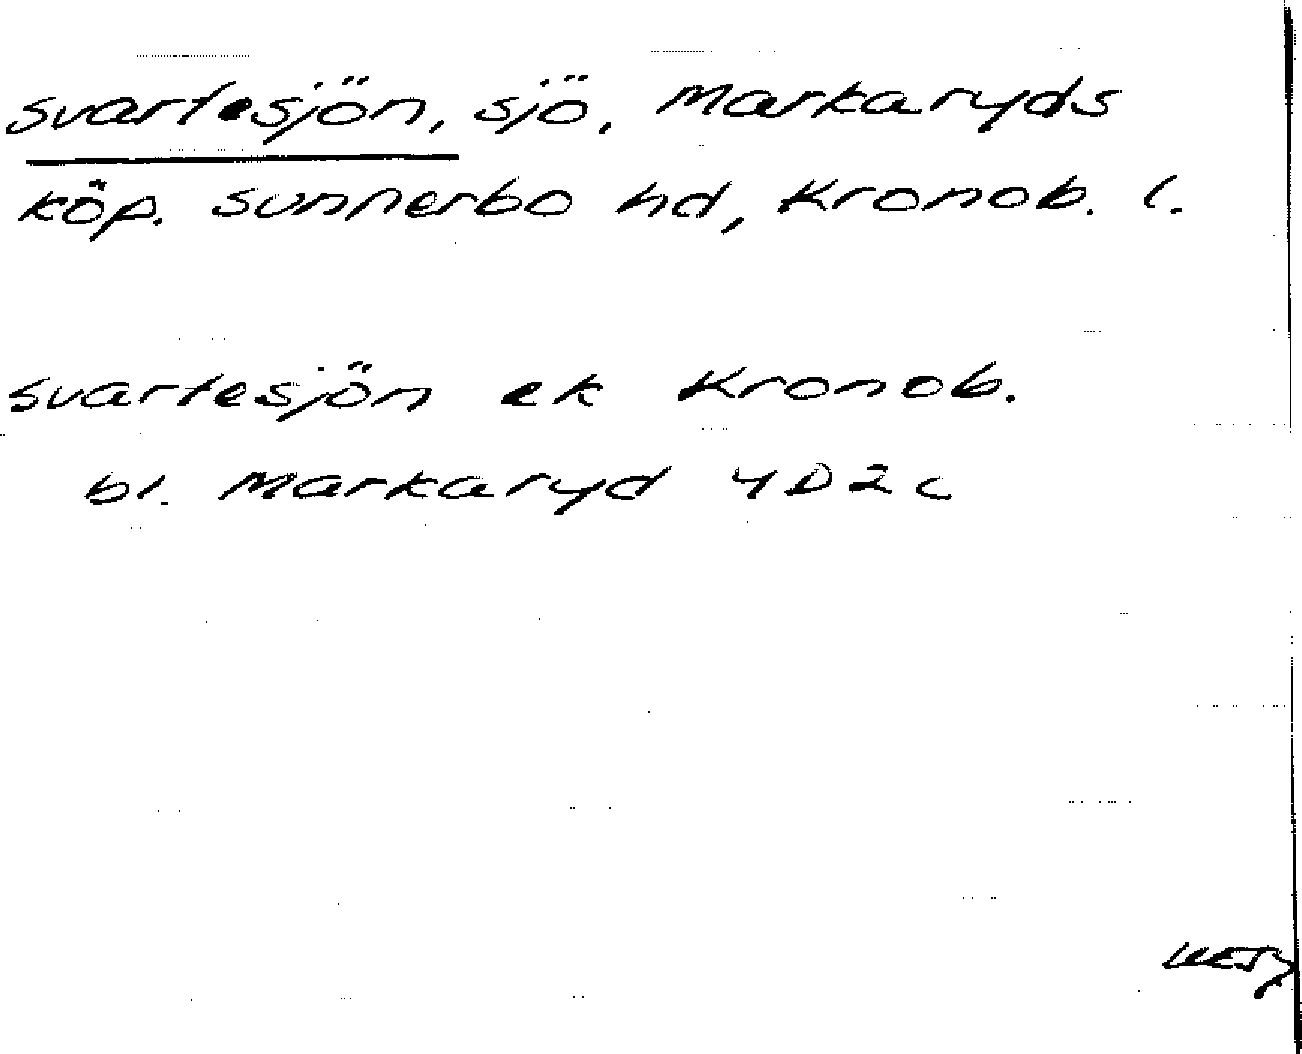 Svartesjön, sjö, Markaryds
köp. Sunnerbo hd, Kronob. l.
Svartesjön ek Kronob.
bl. Markaryd 4D2c